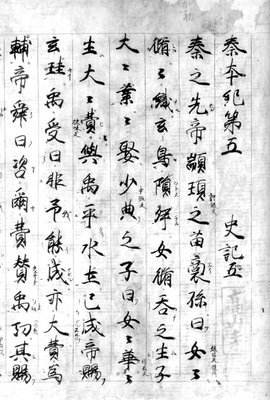 秦本紀第五　史記五
秦之先帝顓頊之苗裔孫曰女〻
脩〻織玄鳥隕卵女脩吞之生子
大〻業〻娶少典之子曰女〻華〻
生大〻費〻與禹平水土已成帝賜
玄珪禹受曰非予能成亦大費為
輔帝舜曰咨爾費賛禹功其賜